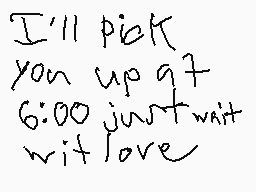 I'll pick
you up at
6:00 just wait
wit love